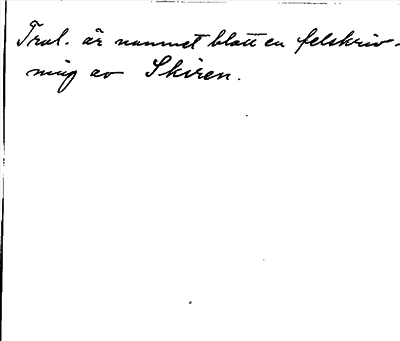 Trol. är namnet blott en felskriv-
ning av Skiren.